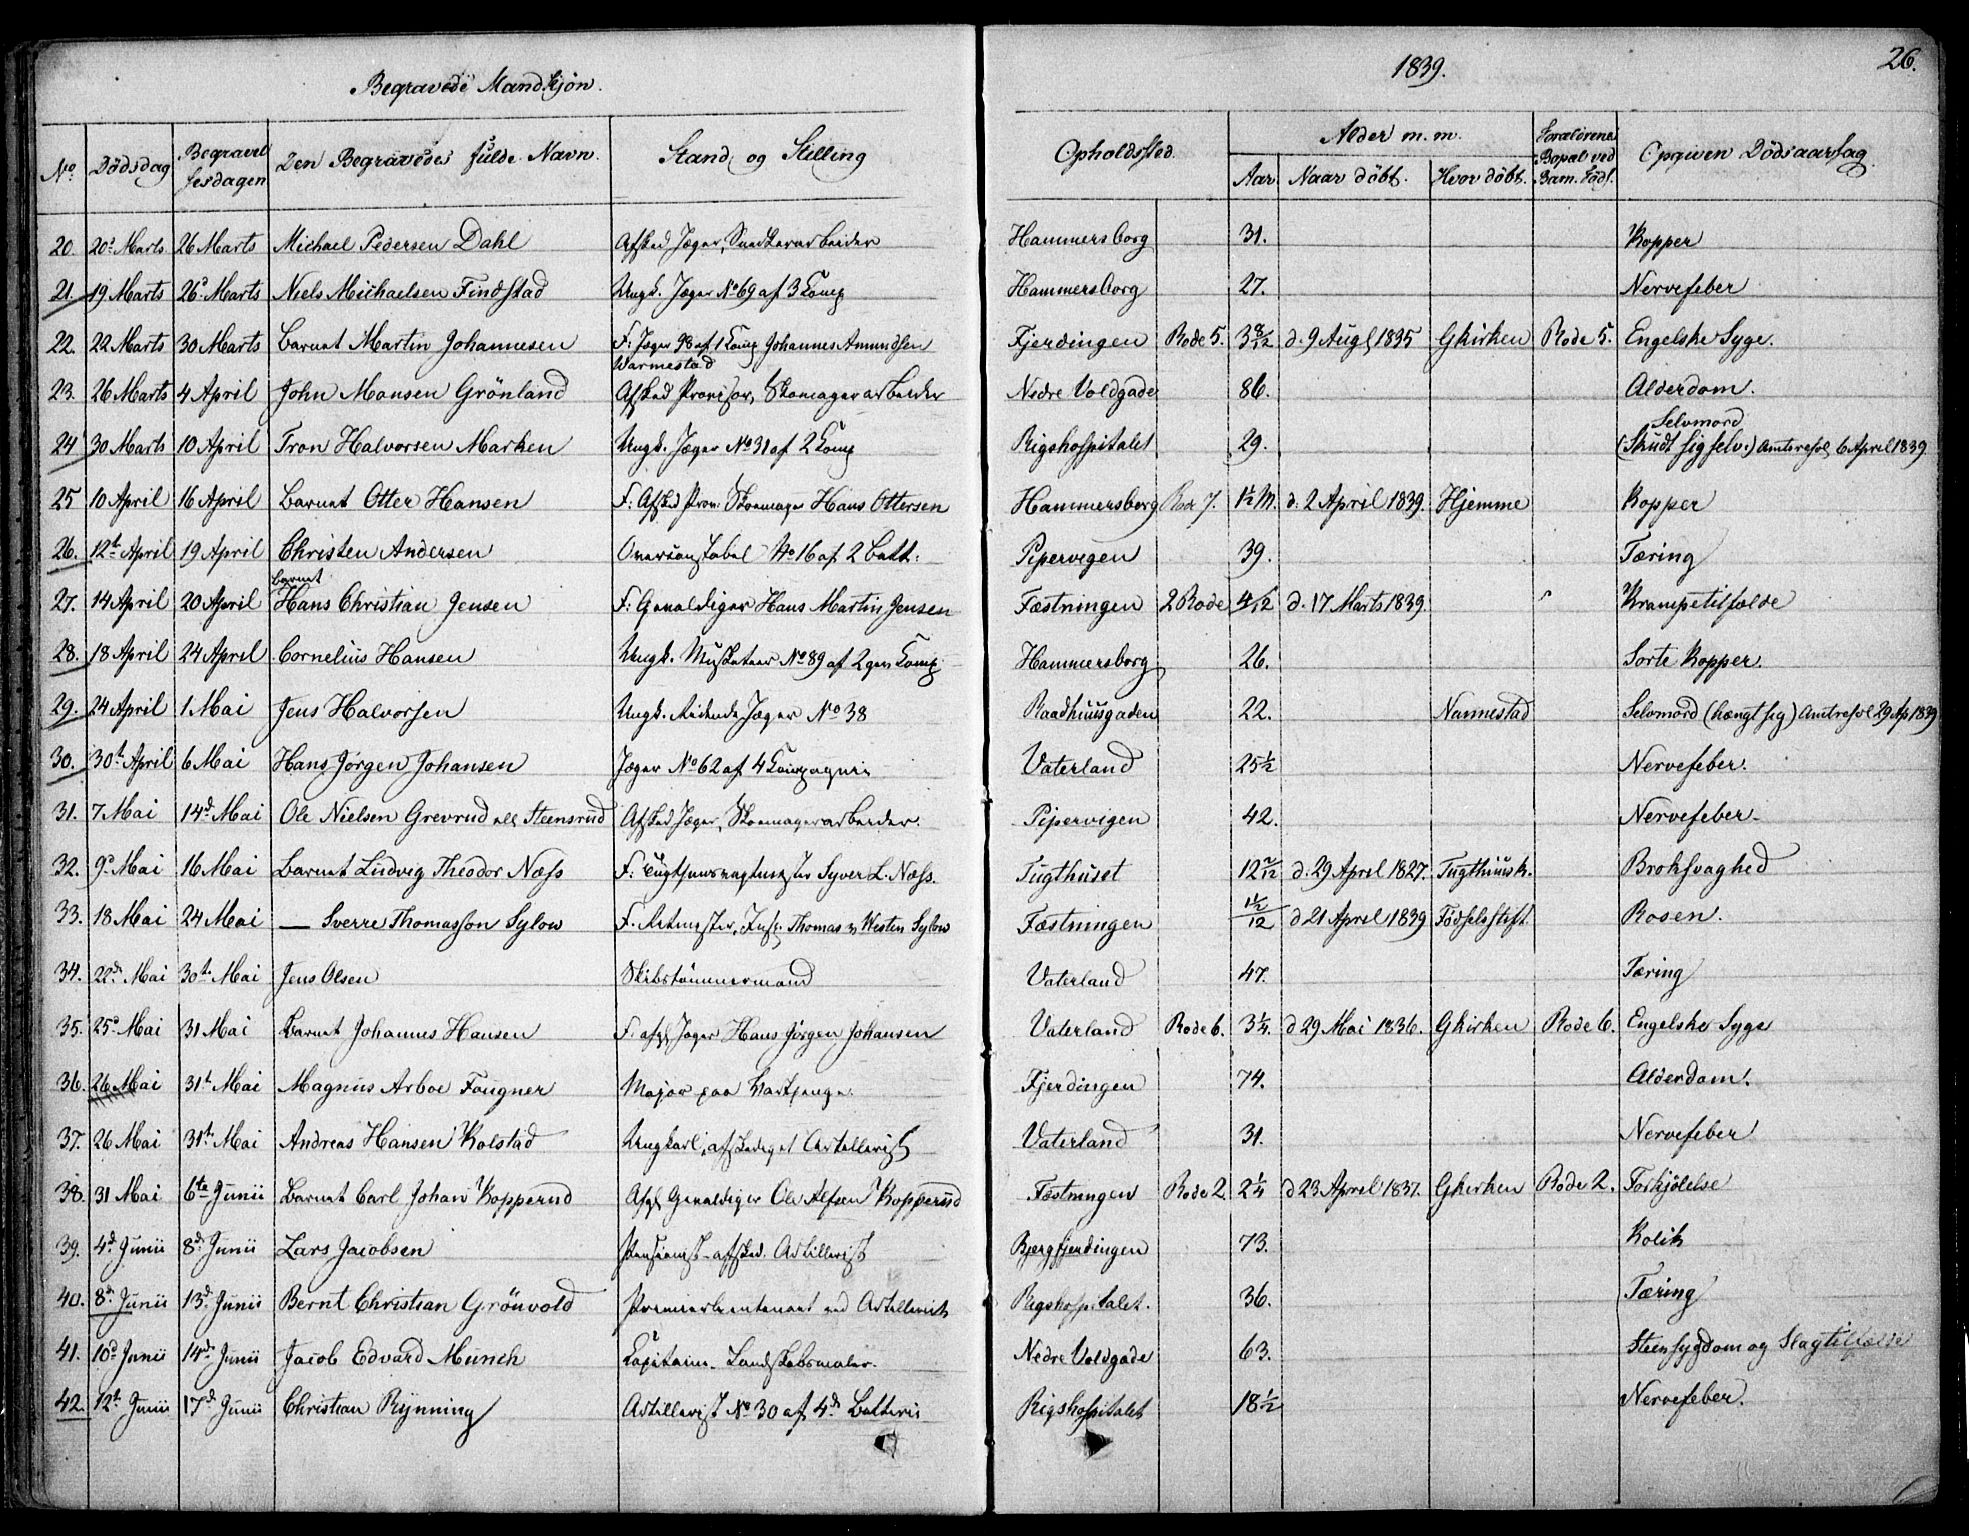 Begravede Mandkjön.
1839.
26.
No. Dödsdag Begravelsesdagen Den Begravedes fulde Navn. Stand og Stilling Opholdssted. Alder m. m. Aar. Naar döbt. Hvor döbt. Forældrenes Bopæl ved Barn. Föds. Opgiven Dödsaarsag
20. 20de Marts 26 Marts Michael Pedersen Dahl Afsked Jæger, Snedkerarbeider Hammersborg 31. Kopper
21. 19 Marts 26de Marts Niels Michaelsen Findstad Ungk. Jæger No 69 af 3 Komp Hammersborg 27. Nervefeber
22. 22 Marts 30 Marts Barnet Martin Johannesen F: Jæger 98 af 1 Komp Johannes Amundsen Warmestad Fjerdingen Rode 5. 3 8/12 d. 9 Augs 1835 Gkirken Rode 5. Engelske Syge.
23. 26 Marts 4 April John Monsen Grönland Afsked Provisor, Skomagerarbeider Nedre Voldgade 86. Alderdom.
24 30 Marts 10 April Tron Halvorsen Marken Ungk. Jæger No 31 af 2 Komp Rigshospitalet 29. Selvmord (Skudt sig selv.) Amtsresol. 6 April 1839
25 10 April 16 April Barnet Otter Hansen F: Afsked Prov: Skomager Hans Ottersen Hammersborg Rode 7. 1½ M. d. 2 April 1839. Hjemme Kopper
26. 12te April 19 April Christen Andersen Overconstabel No 16 af 2 Batt. Pipervigen 39. Tæring
27. 14 April 20 April Barnet Hans Christian Jensen F: Gevaldiger Hans Martin Jensen Fæstningen 2 Rode 4/12 d. 17 Marts 1839. Krampetilfælde
28. 18 April 24 April Cornelius Hansen Ungk. Musketeer No 89 af 2gen Komp Hammersborg 26. Sorte Kopper.
29. 24 April 1 Mai Jens Halvorsen Ungk. Ridende Jæger No 38 Raadhuusgaden 22. Nannestad Selvmord (hængt sig) Amtresol 29 Ap 1839
30. 30te April 6 Mai Hans Jörgen Johansen Jæger No 62 af 4 Kompagnie Vaterland 25½ Nervefeber.
31. 7 Mai 14de Mai Ole Nielsen Grevrud ell Steensrud Afsked Jæger, Skomagerarbeider. Pipervigen 42. Nervefeber
32. 9de Mai 16 Mai Barnet Ludvig Theodor Næss F: Tugthusvagtmester Syver L. Næss. Tugthuset 12 d. 29 April 1827. Tugthuusk. Broksvaghed
33. 18 Mai 24 Mai — Sverre Thomasson Sylow F. Ritmester, Thomas v Westen Sylow Fæstningen 1½/12 d 21 April 1839 Födselsstift. Rosen.
34. 22de Mai 30te Mai Jens Olsen Skibstömmermand Vaterland 47. Tæring
35. 25de Mai 31 Mai Barnet Johannes Hansen F. afg. Jæger Hans Jörgen Johansen Vaterland Rode 6. 3¼. d 29 Mai 1836. Gkirken Rode 6. Engelske Syge
36. 26 Mai 31te Mai Magnus Arboe Fougner Major paa Vartpenge. Fjerdingen 74. Alderdom.
37. 26 Mai 31te Mai Andreas Hansen Kolstad Ungkarl, afskediget Artillerist Vaterland 31. Nervefeber
38. 31 Mai 6te Junii Barnet Carl Johan Kopperud Afg. Gevaldiger Ole Alfsen Kopperud Fæstningen Rode 2. 2¼ d 23 April 1837. Gkirken Rode 2. Forkjölelse
39. 4de Junii 8de Junii Lars Jacobsen Pensionist afsked. Artillerist Bjergfjerdingen 73. Kolik
40. 8de Junii 13de Junii Bernt Christian Grönvold Premierlieutenant ved Artilleriet Rigshospitalet. 36. Tæring
41. 10de Junii 14de Junii Jacob Edvard Munch Kapitain. Landskabsmaler. Nedre Voldgade 63. Steensygdom og Slagtilfælde
42. 12te Junii 17de Junii Christian Rynning Artillerist No 30 af 4de Batterie Rigshospitalet 18½ Nervefeber.